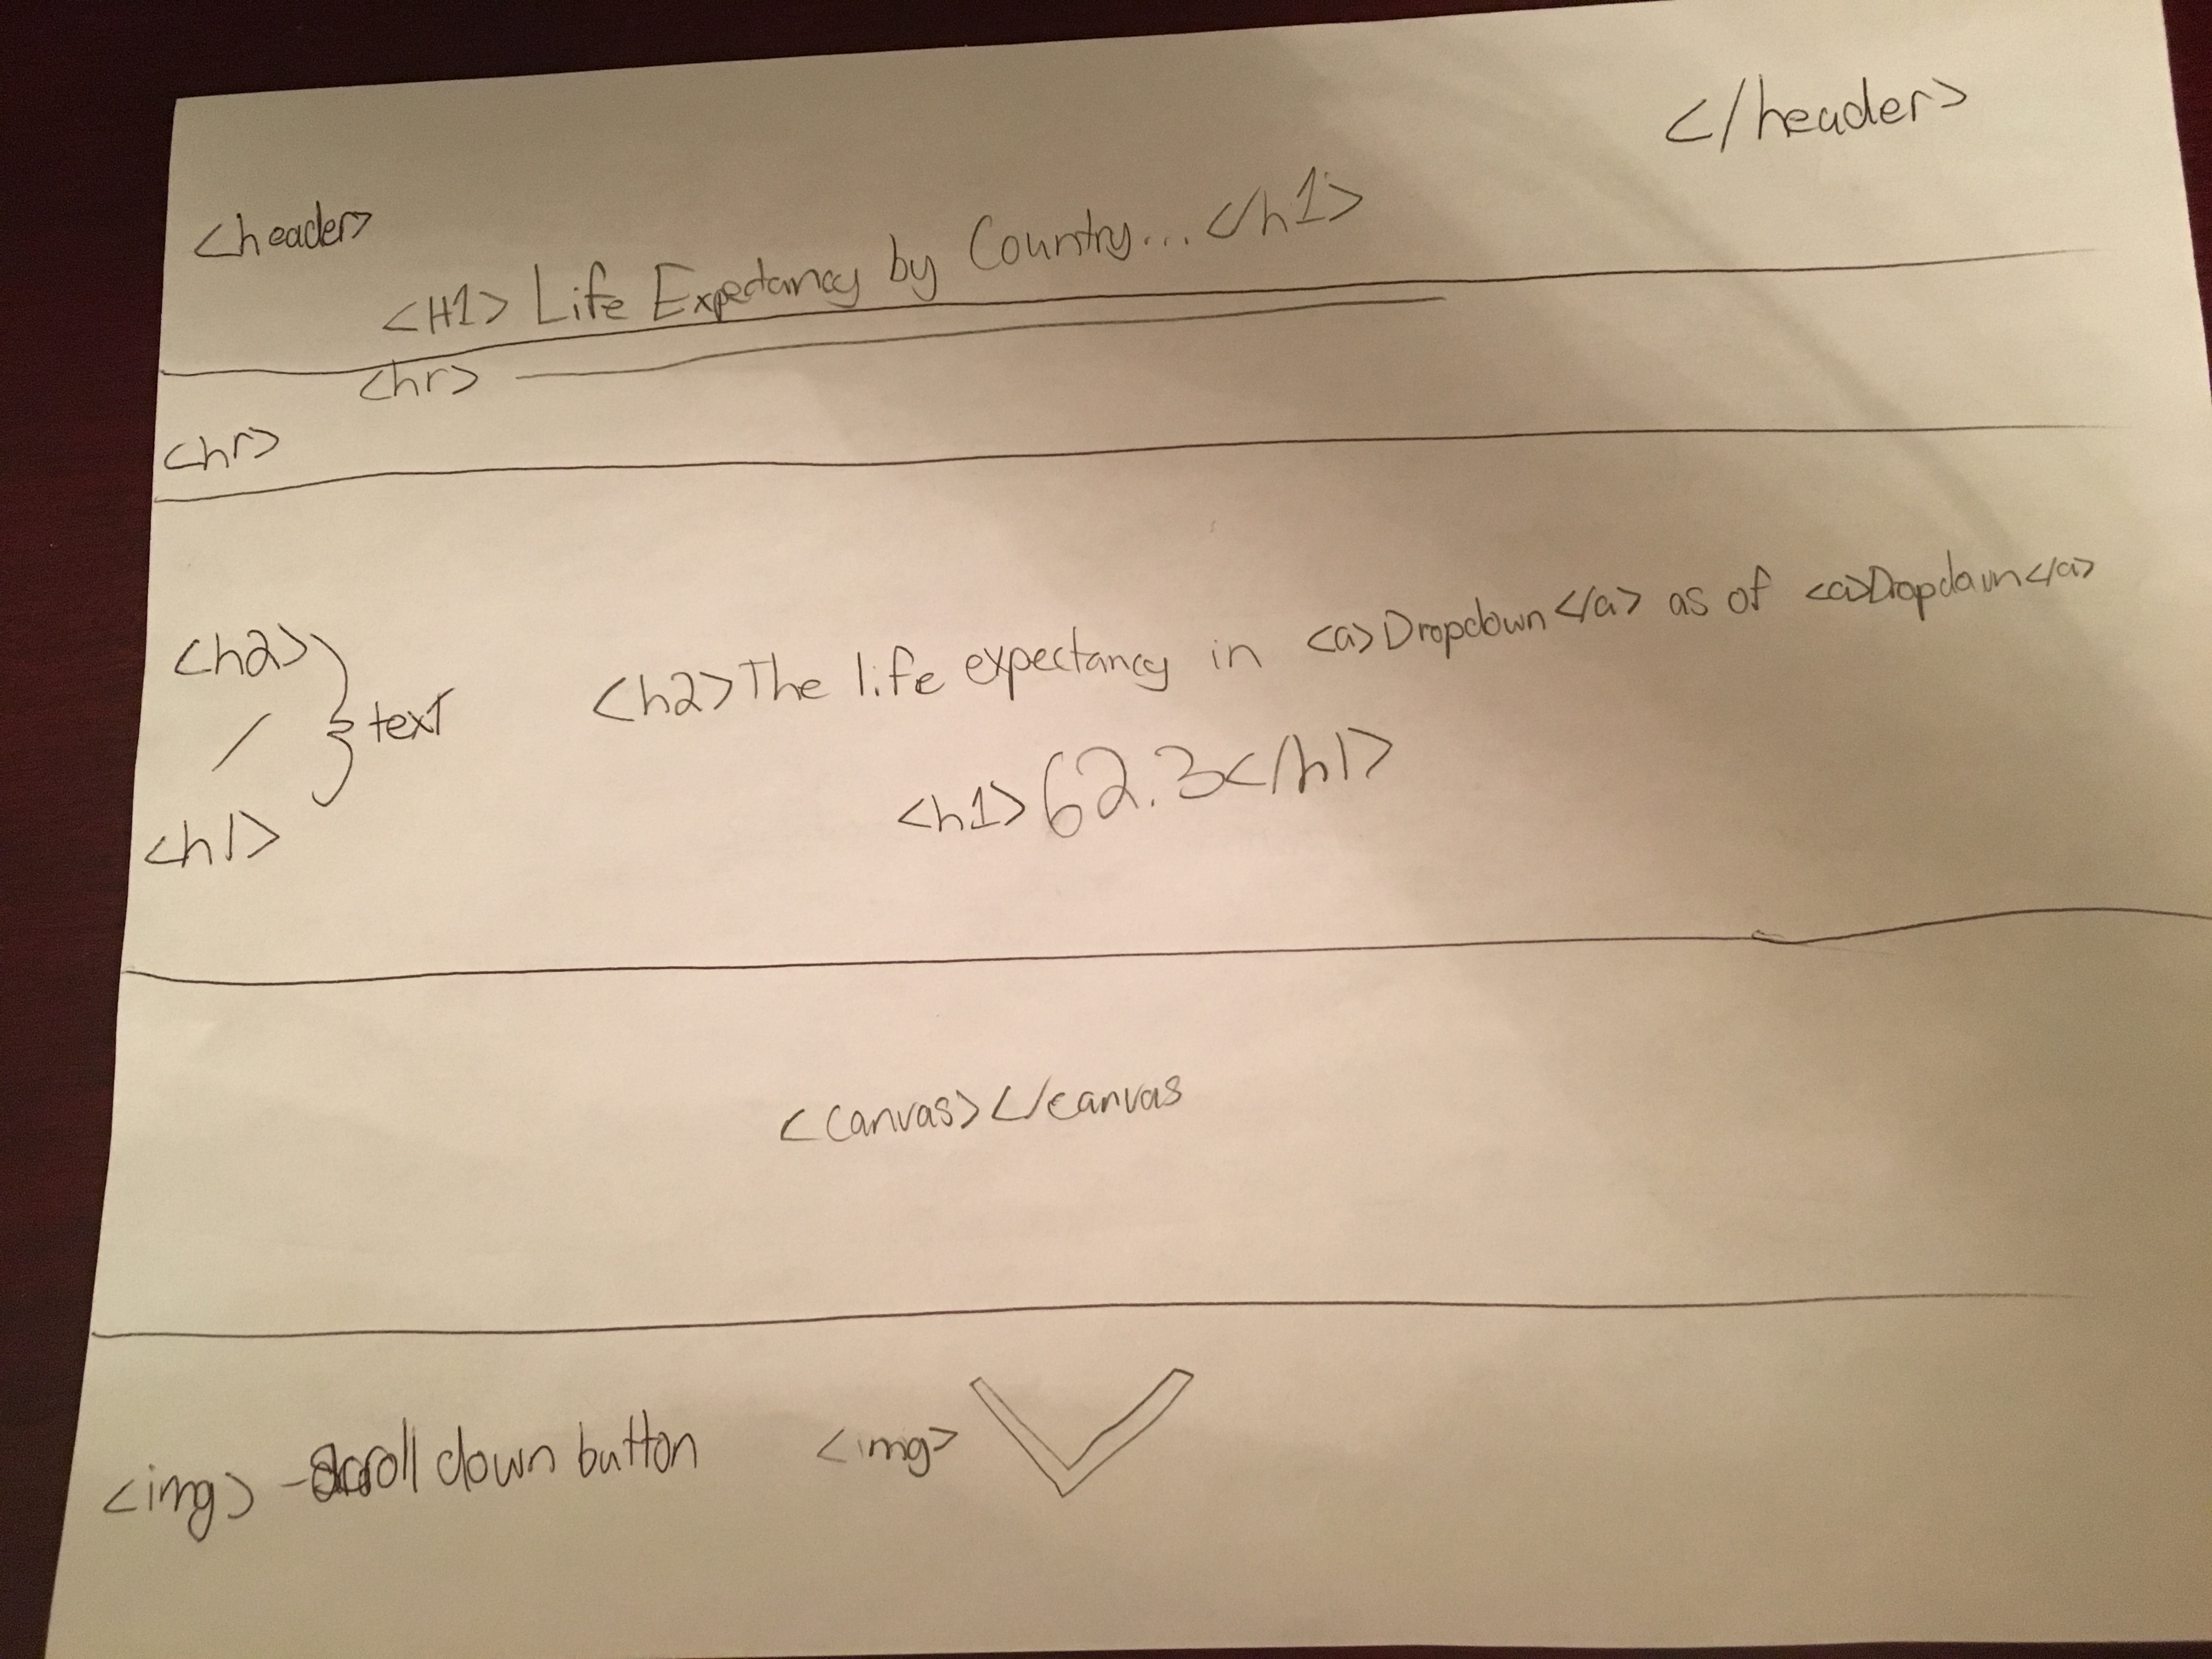 <header> </header>
<H1> Life Expectancy by Country... </h1>
<hr> <hr>
<h2> } text <h2>The life expectancy in <a>Dropdown</a> as of <a>Dropdown</a>
/
<h1> <h1>62.3</h1>
<canvas></canvas
<img> - scroll down button <img>